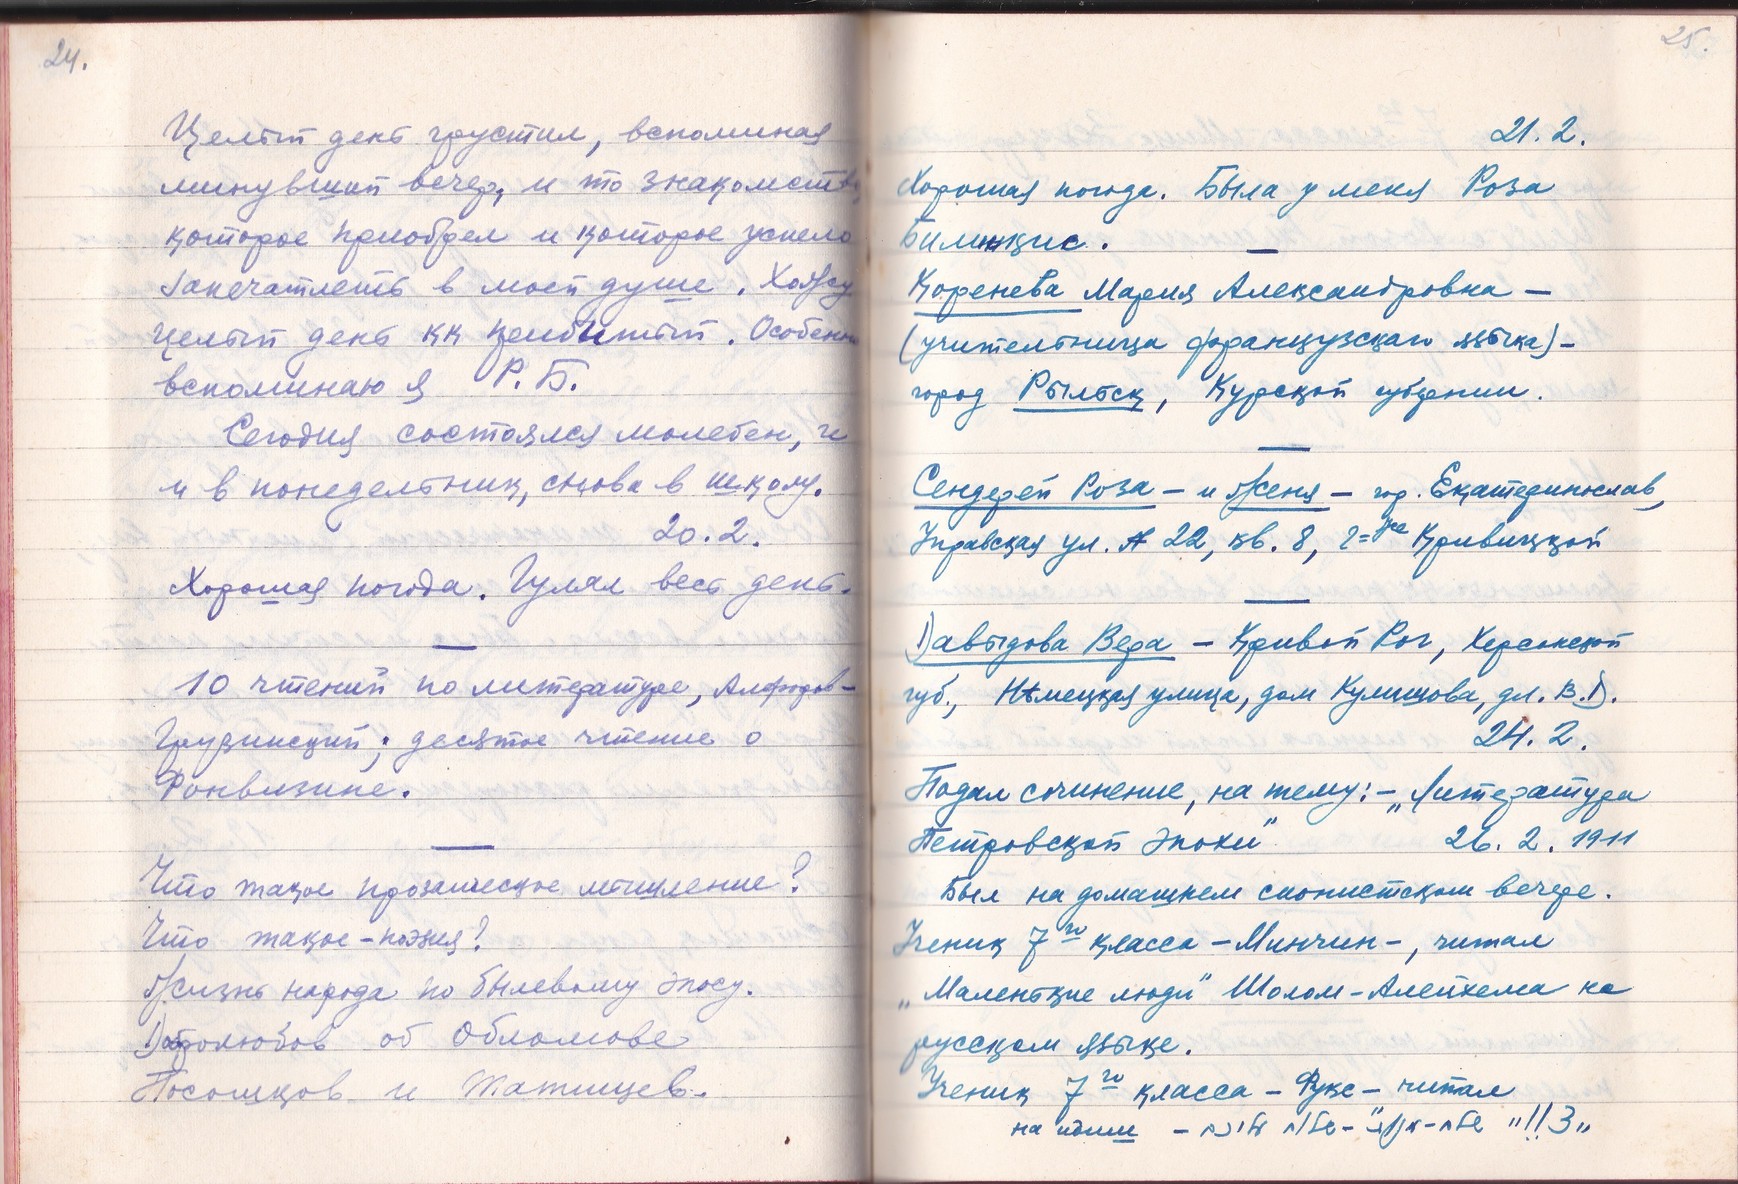 24.
Целый день грустил, вспоминая
минувший вечер, и то знакомство,
которое приобрел и которое успело
запечатлеть в моей душе. Хожу
целый день кк прибитый. Особенно
вспоминаю я Р. Б.
Сегодня состоялся молебен, и
и в понедельник, снова в школу.
20. 2.
Хорошая погода. Гулял весь день.
10 чтений по литературе,
Грузинский; десятое чтение о
Фонвизине.
Что такое прозаическое мышление?
Что такое - поэзия?
Жизнь народа по былевому эпосу.
Добролюбов об Обломове
Посошков и Татищев.
25.
21. 2.
Хорошая погода. Была у меня Роза
Билинкис.
Коренева Мария Александровна —
(учительница французскаго языка) -
город Рыльск, Курской губернии.
Сендерей Роза - и Женя - гор. Екатеринослав,
Управская ул. № 22, кв. 8, г=жа Кривицкой
Давыдова Вера - Кривой Рог, Херсонской
губ., Нѣмецкая улица, дом Кулишова, дл. В. Д.
24. 2.
Подал сочинение, на тему: - „Литература
Петровской эпохи" 26. 2. 1911
Был на домашнем сионистском вечере.
Ученик 7го класса - Минчин -, читал
„Маленькие люди" Шолом-Алейхема на
русском языке.
Ученик 7го класса - Фукс - читал
на идиш